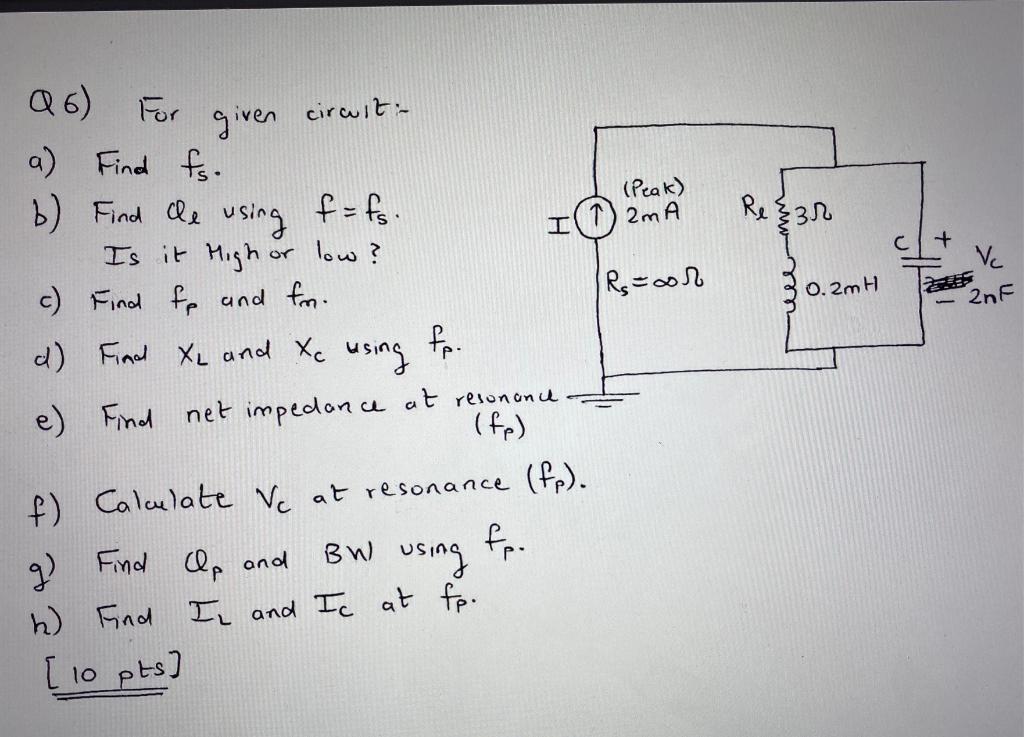 Q6) For given circuit:-
a) Find fs.
b) Find Ql using f = fs.
Is it High or low?
c) Find fp and fm.
d) Find XL and Xc using fp.
e) Find net impedance at resonance
(fp)
f) Calculate Vc at resonance (fp).
g) Find Qp and BW using fp.
h) Find IL and Ic at fp.
[10 pts]
(Peak)
I 2mA
Rs=∞Ω
Rl 3Ω
0.2mH
C + Vc
- 2nF